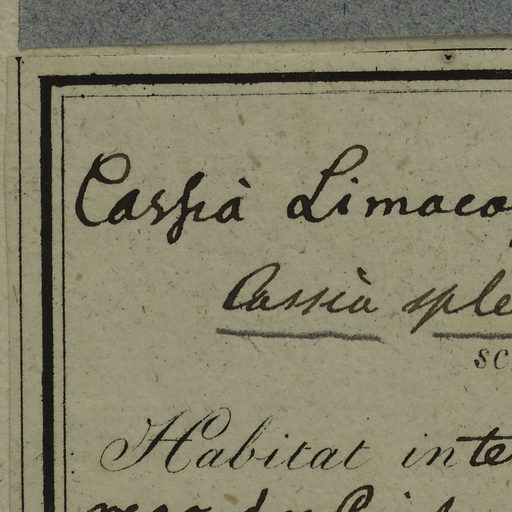 Cassià Limaco
Cassià sple
sc
Habitat inte